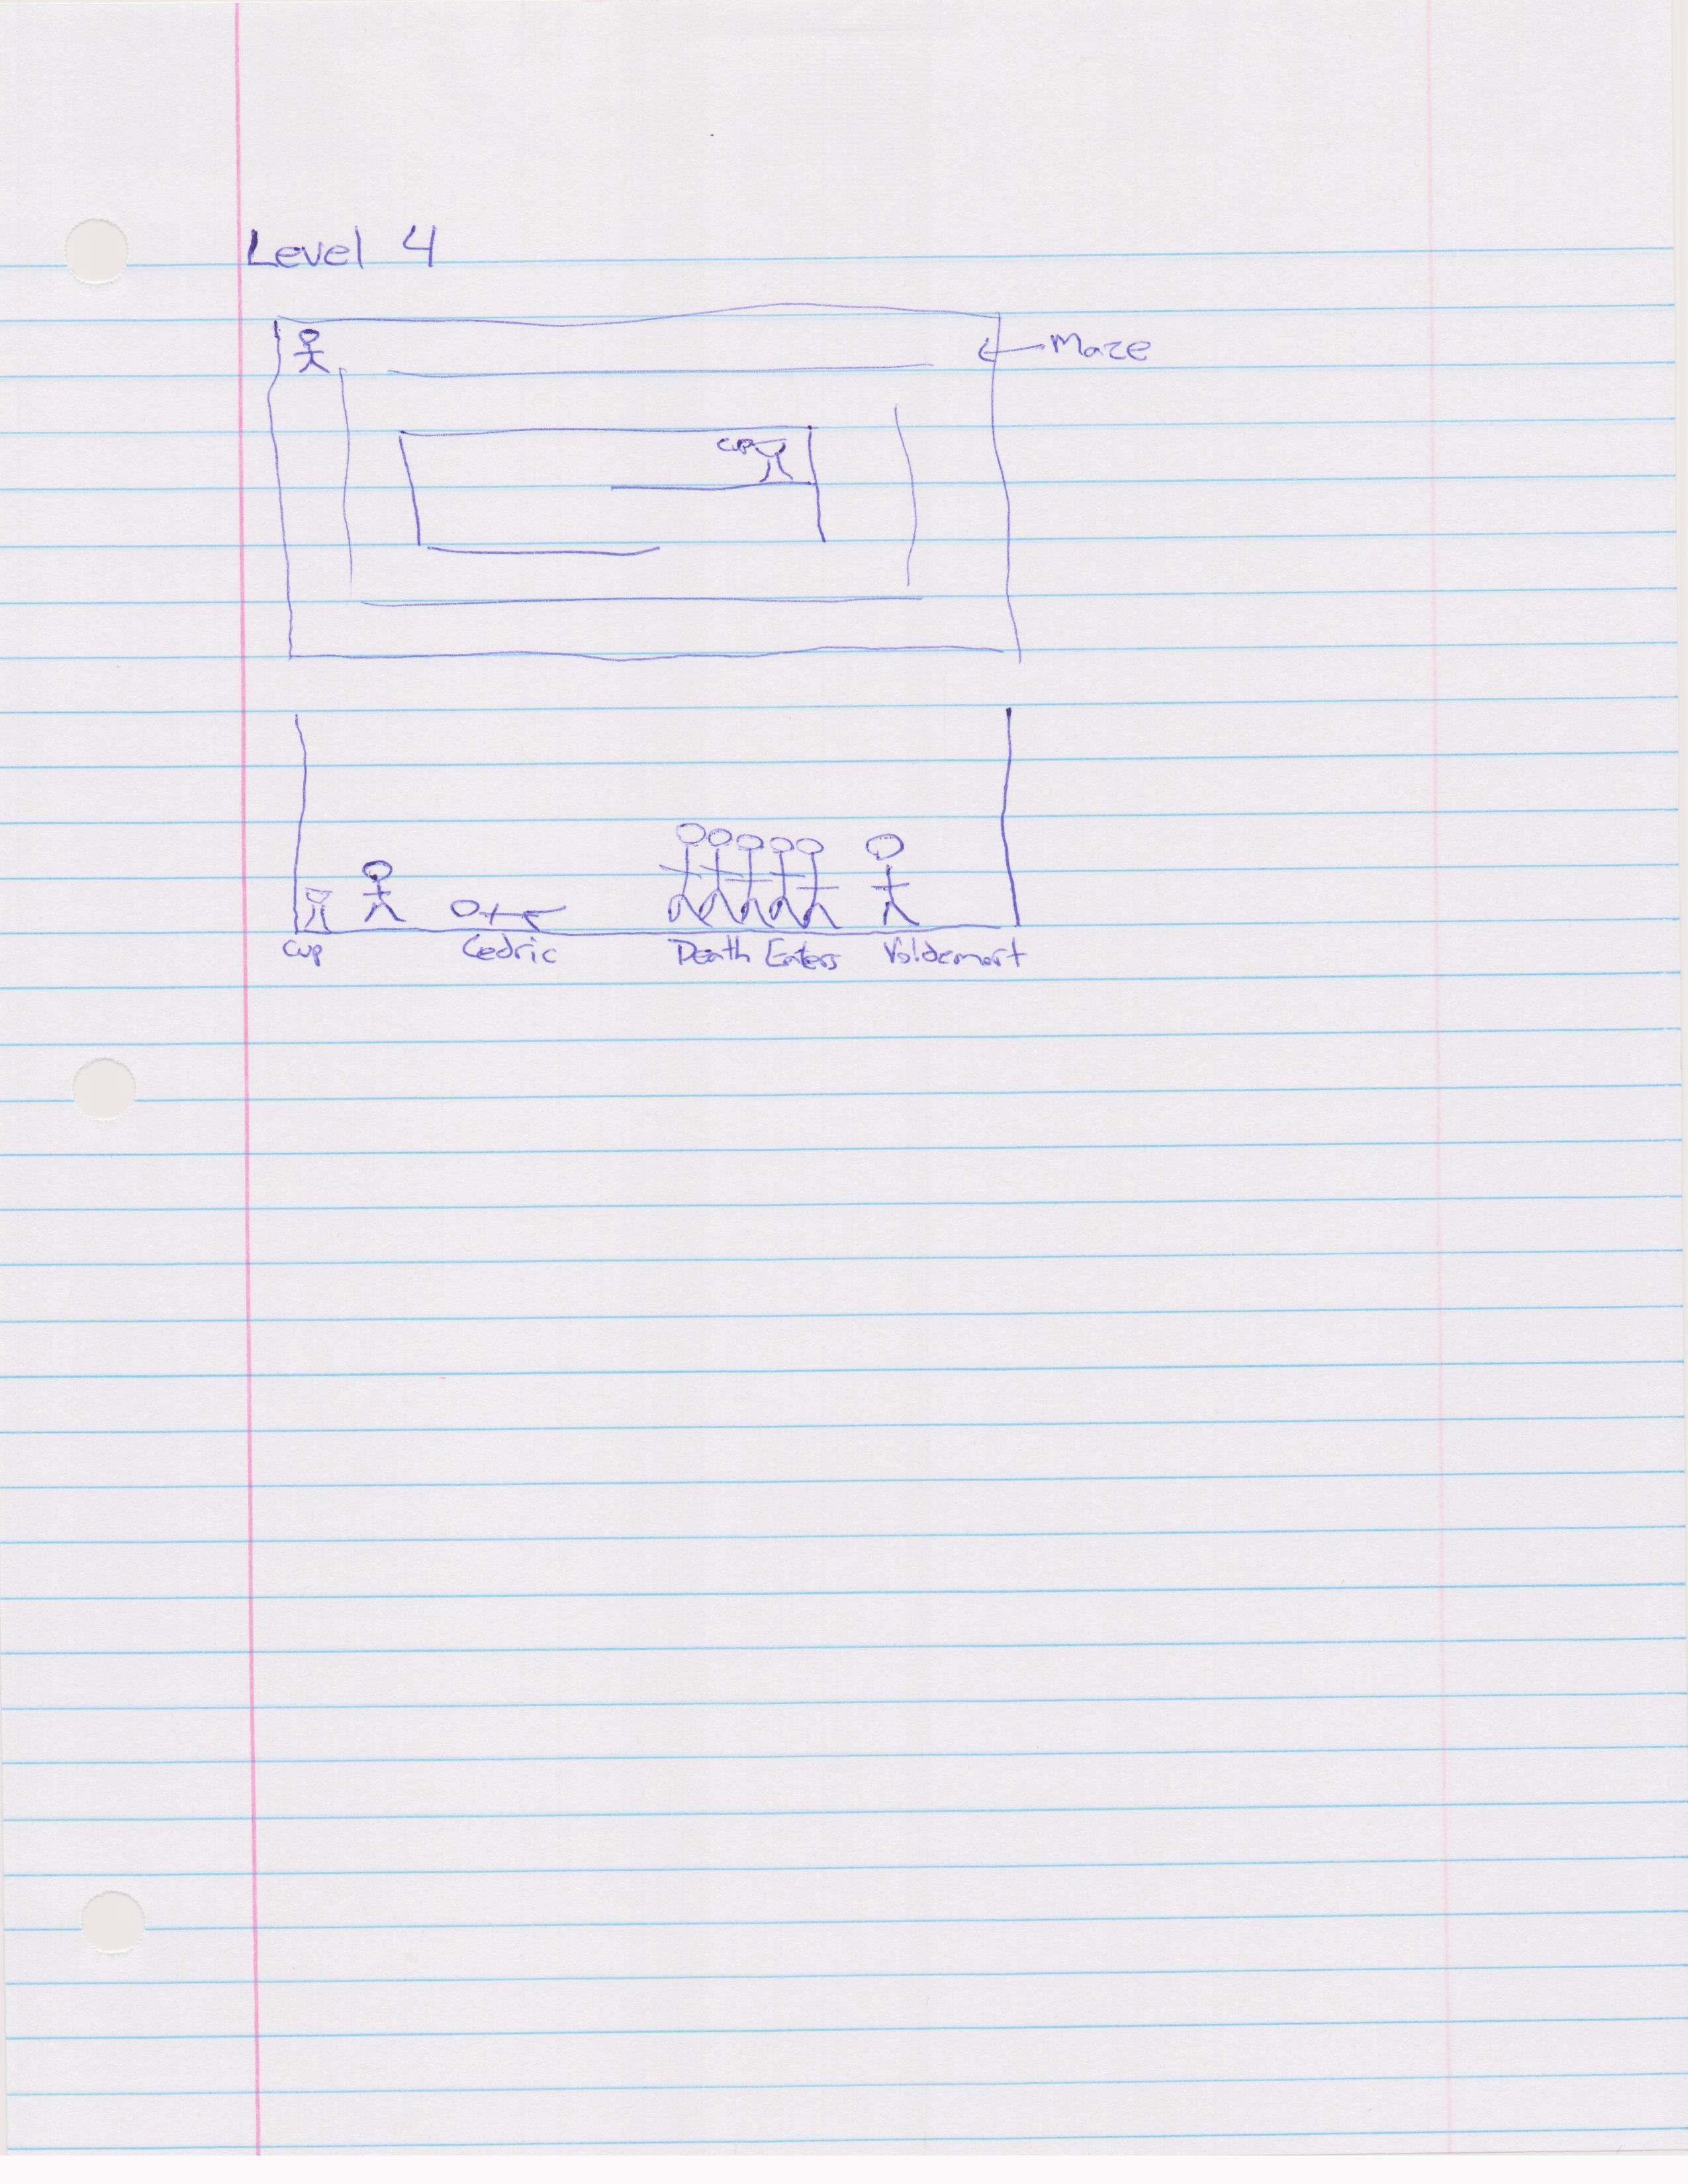 Level 4
Maze
cup
cup Cedric Death Eaters Voldemort